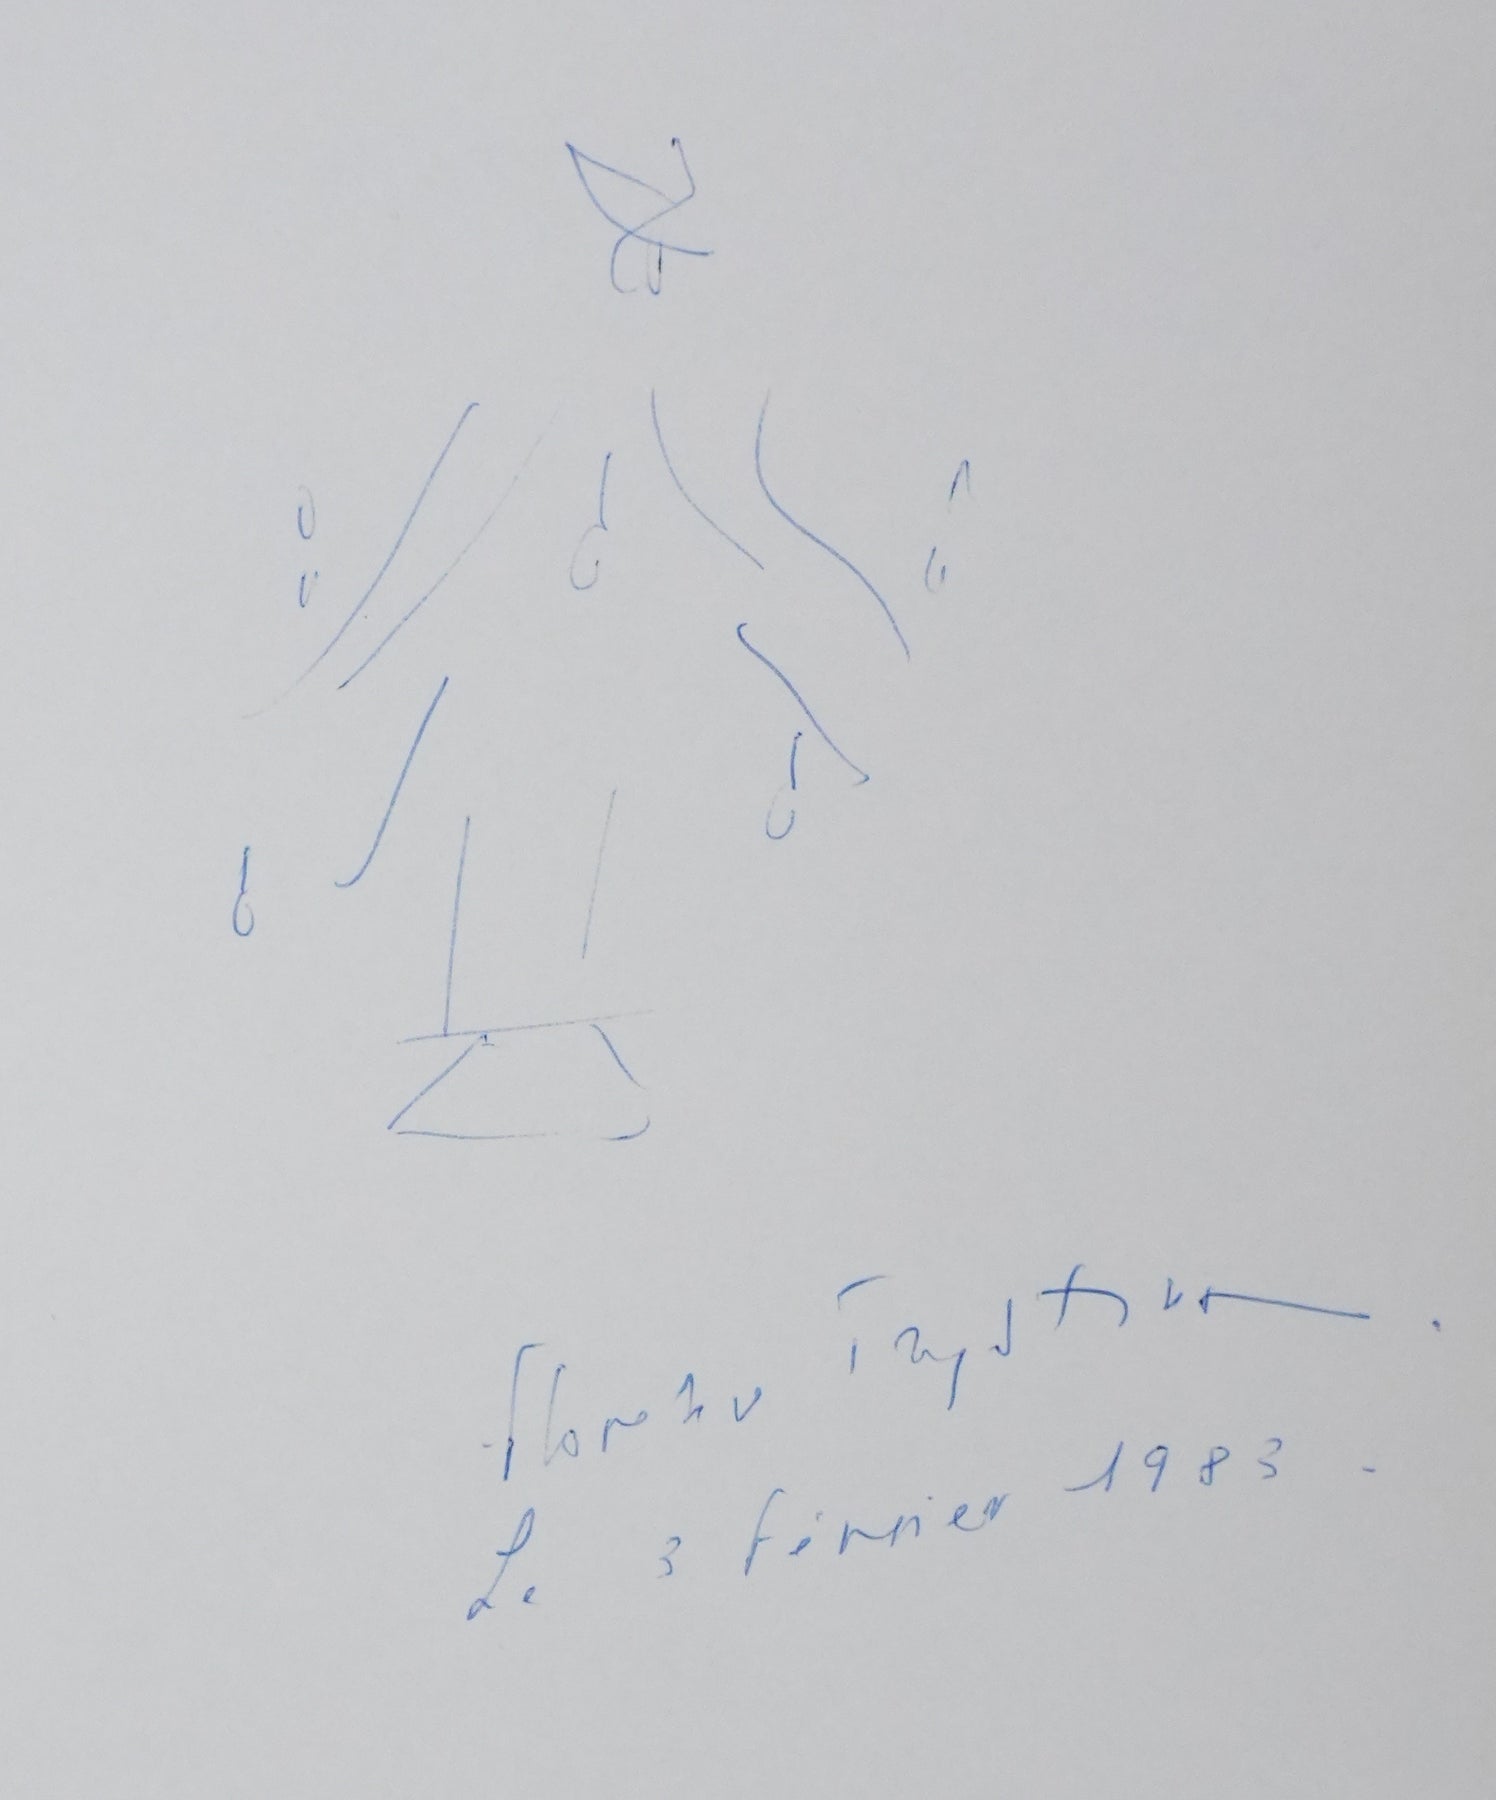 Florence Trystram.
Le 3 février 1983.